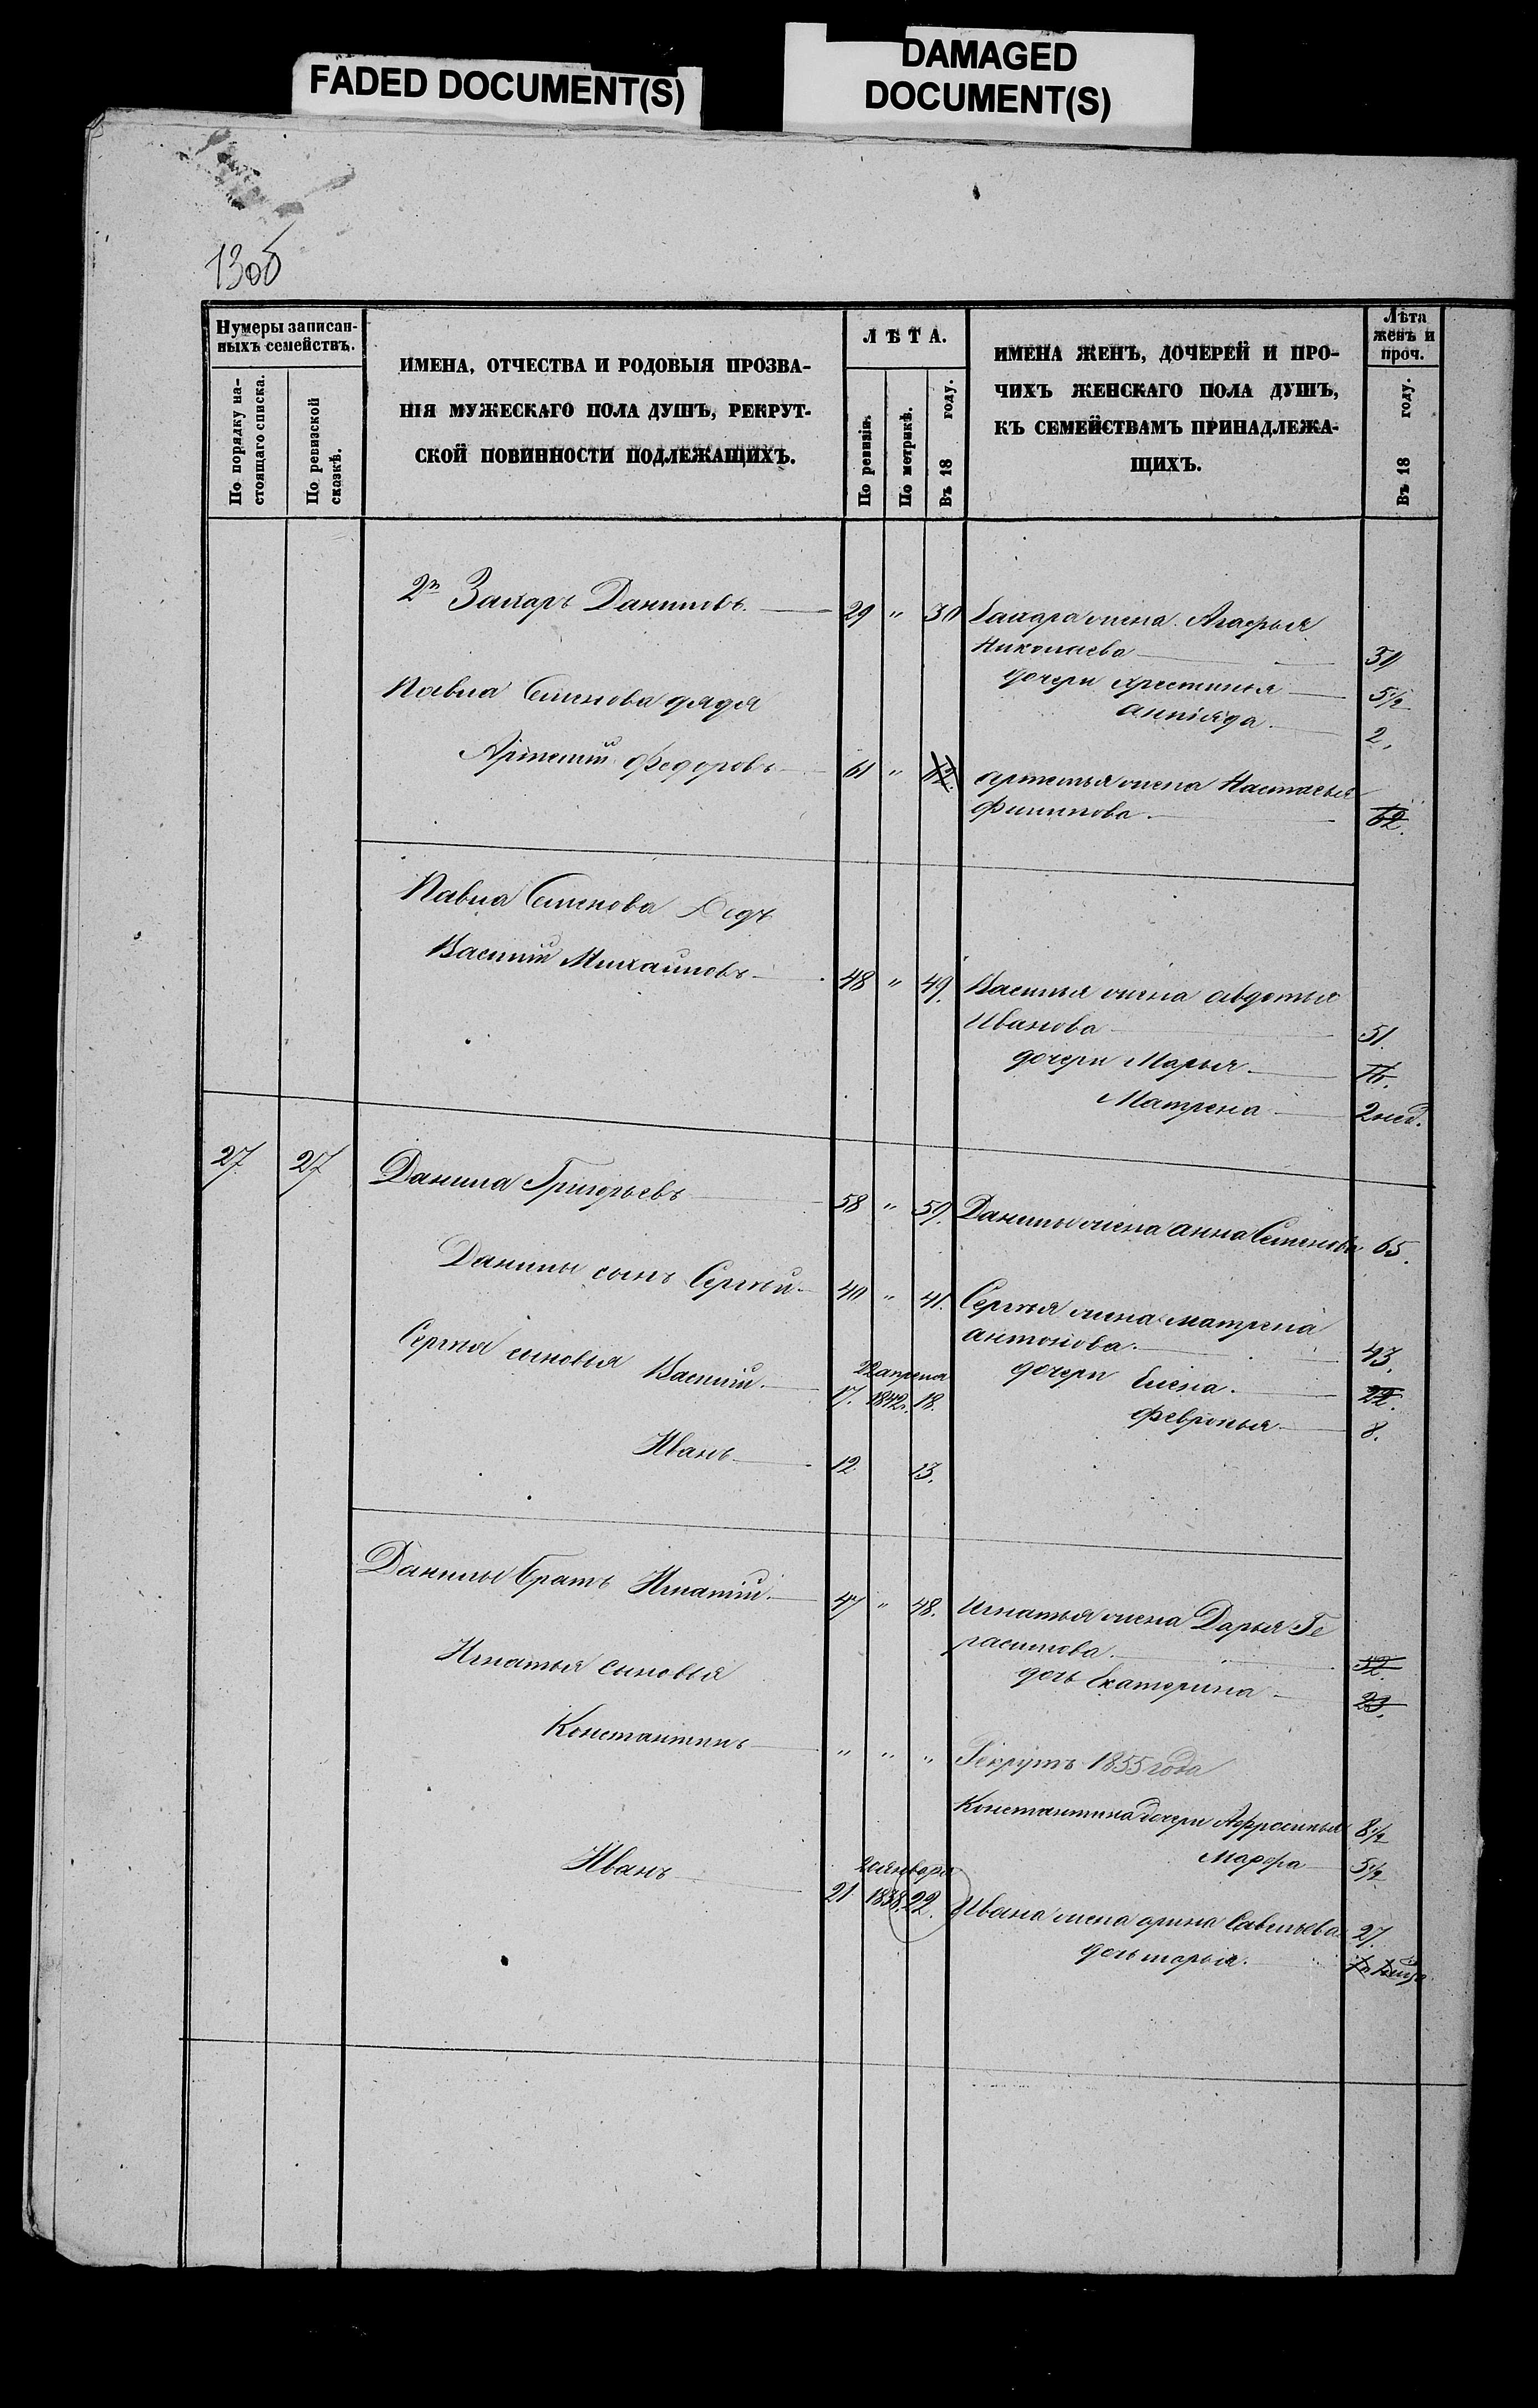 FADED DOCUMENT(S)
DAMAGED
DOCUMENT(S)
130об
Нумеры записан-
ныхъ семействъ.
По порядку на-
стоящаго списка.
По ревизской
сказкѣ.
ИМЕНА, ОТЧЕСТВА И РОДОВЫЯ ПРОЗВА-
НІЯ МУЖЕСКАГО ПОЛА ДУШЪ, РЕКРУТ-
СКОЙ ПОВИННОСТИ ПОДЛЕЖАЩИХЪ.
ЛѢТА.
По ревизіи.
По метрикѣ.
Въ 18 году.
ИМЕНА ЖЕНЪ, ДОЧЕРЕЙ И ПРО-
ЧИХЪ ЖЕНСКАГО ПОЛА ДУШЪ,
КЪ СЕМЕЙСТВАМЪ ПРИНАДЛЕЖА-
ЩИХЪ.
Лѣта
женъ и
проч.
Въ 18 году.
2й Захаръ Даниловъ 29 " 30 Захара жена Агафья
Николаева
дочери Хрестинья 5½
2.
Павла Семенова дядя
Федоровъ 61 " 62. жена Настасья
Филипова. 62.
Павла Семенова
Василій Михайловъ 48 " 49. Василья жена авдотья
Иванова 51.
дочери Марья
Матрена 2 нед.
27 27 Данила Григорьевъ 58 " 59. Данилы жена анна Семенова 65.
Данилы сынъ Сергѣй 40 " 41. Сергѣя жена матрена
антонова. 43.
Сергѣя сыновья Василій 17. 22 апреля 1842. 18. дочери Елена. 22.
Февронья 8.
Иванъ 12 13.
Данилы братъ Игнатій. 47 " 48. Игнатья жена Дарья Ге
расимова. 52.
Игнатья сыновья дочь Екатерина 23.
Константинъ " " " Рекрутъ 1855 года
Константина дочери Афросинья 8½
Марфа 5½
Иванъ 21 января 1838. 22. Ивана жена арина Савельева 27.
дочь марья.